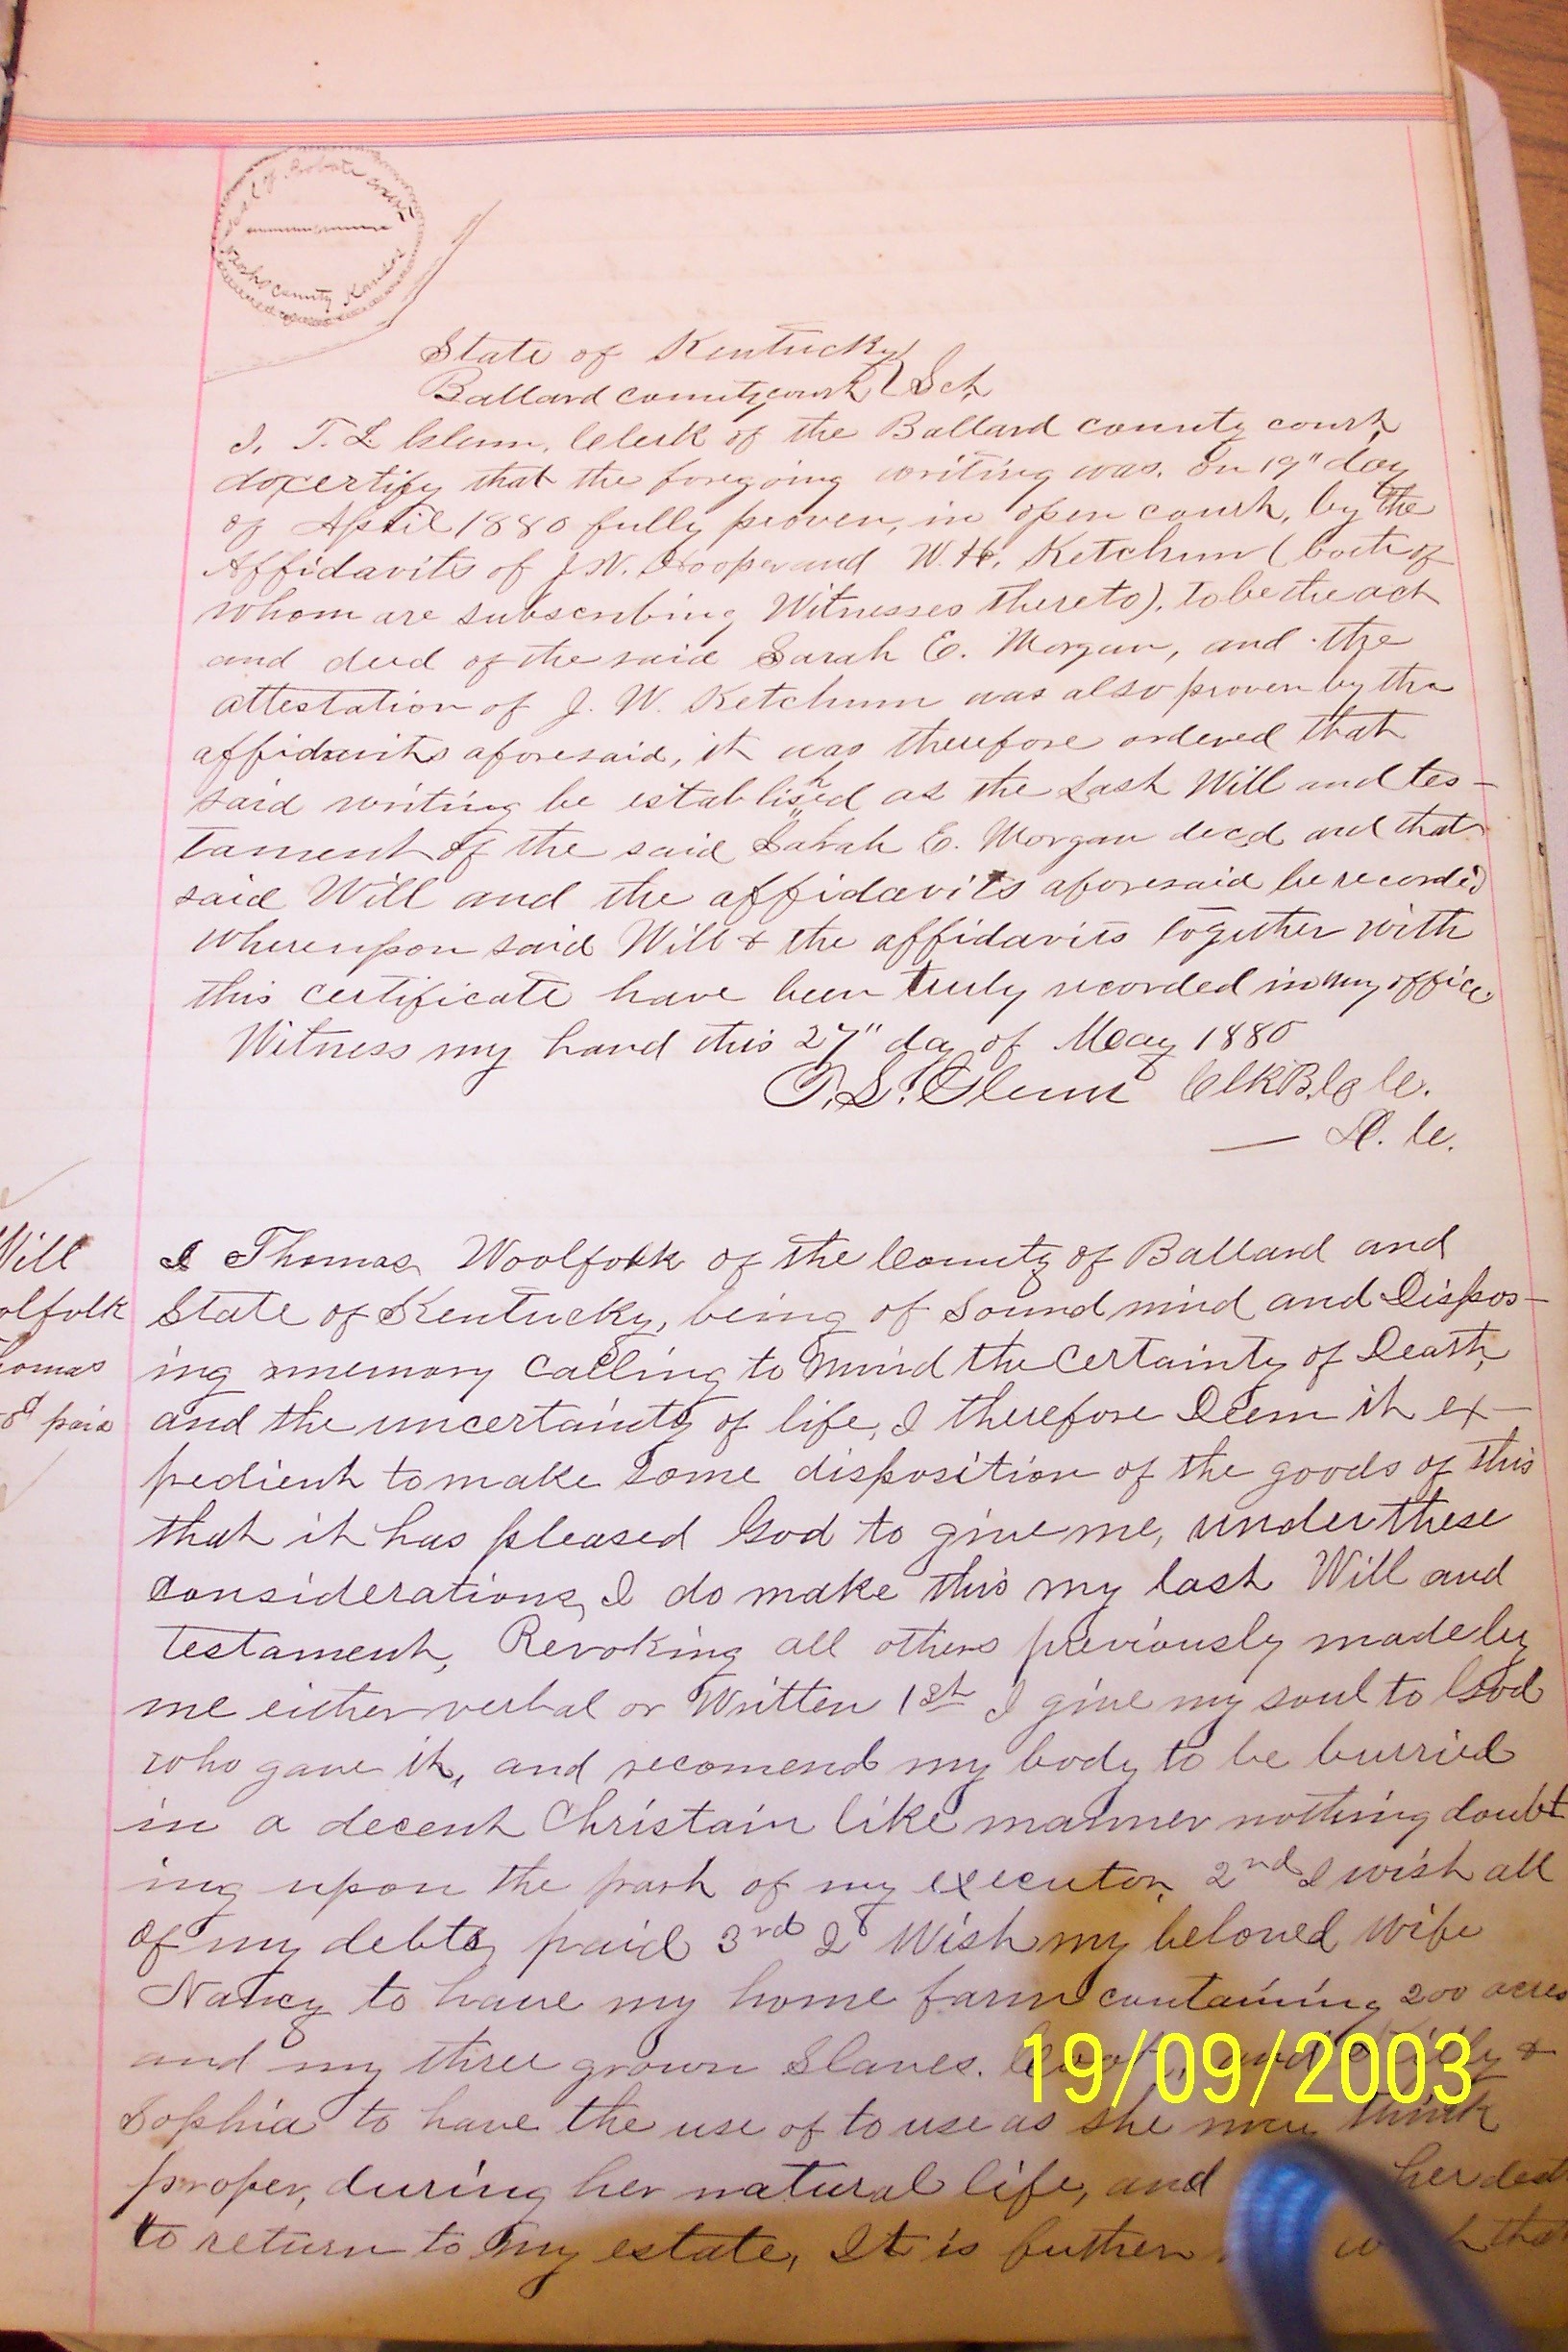 Seal of Probate Court
Neosho County Kansas
State of Kentucky }
Ballard county court } Sct,
I, T. L. Glenn, Clerk of the Ballard county court,
do certify that the foregoing writing was, on 19" day
of April 1880 fully proven, in open court, by the
Affidavits of J. N. Hooper and W. H. Ketchum (both of
whom are subscribing Witnesses thereto), to be the act
and deed of the said Sarah E. Morgan, and the
attestation of J. W. Ketchum was also proven by the
affidavits aforesaid, it was therefore ordered that
said writing be established as the Last Will and tes-
tament of the said Sarah E. Morgan decd and that
said Will and the affidavits aforesaid be recorded
whereupon said Will & the affidavits together with
this certificate have been truly recorded in my office
Witness my hand this 27" day of May 1880
T. L. Glenn Clk B. Co C.
— D. C.
Will
olfolk
homas
pd paid
I Thomas Woolfolk of the County of Ballard and
State of Kentucky, being of Sound mind and Dispos-
ing memory calling to mind the certainty of Death,
and the uncertainty of life, I therefore Deem it ex-
pedient to make Some disposition of the goods of this
that it has pleased God to give me, under these
considerations, I do make this my last Will and
testament, Revoking all others previously made by
me either verbal or Written 1st I give my soul to God
who gave it, and recomend my body to be burried
in a decent Christain like manner nothing doubt
ing upon the part of my executor, 2nd I wish all
of my debts paid 3rd I Wish my beloved wife
Nancy to have my home farm containing 200 acres
and my three grown Slaves. and &
Sophia to have the use of to use as she may think
proper, during her natural life, and her deat
to return to my estate, It is futher that
19/09/2003